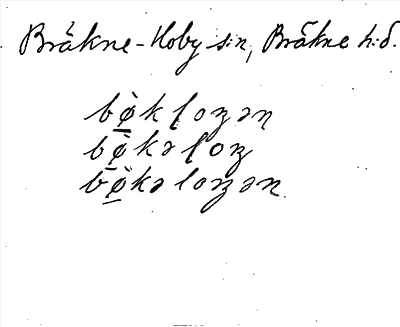 Bräkne-Hoby s:n, Bräkne h:d.
bø̲̀k loꜩən
bø̲̀kə loꜩ
bø̲̀kə loꜩən